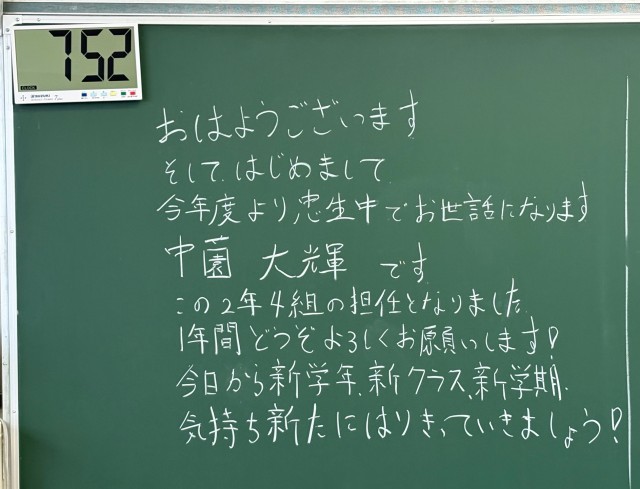 752
おはようございます
そして、はじめまして
今年度より、忠生中でお世話になります
中薗 大輝 です
この2年4組の担任となりました
1年間どうぞよろしくお願いします!
今日から新学年、新クラス、新学期、
気持ち新たにはりきっていきましょう!